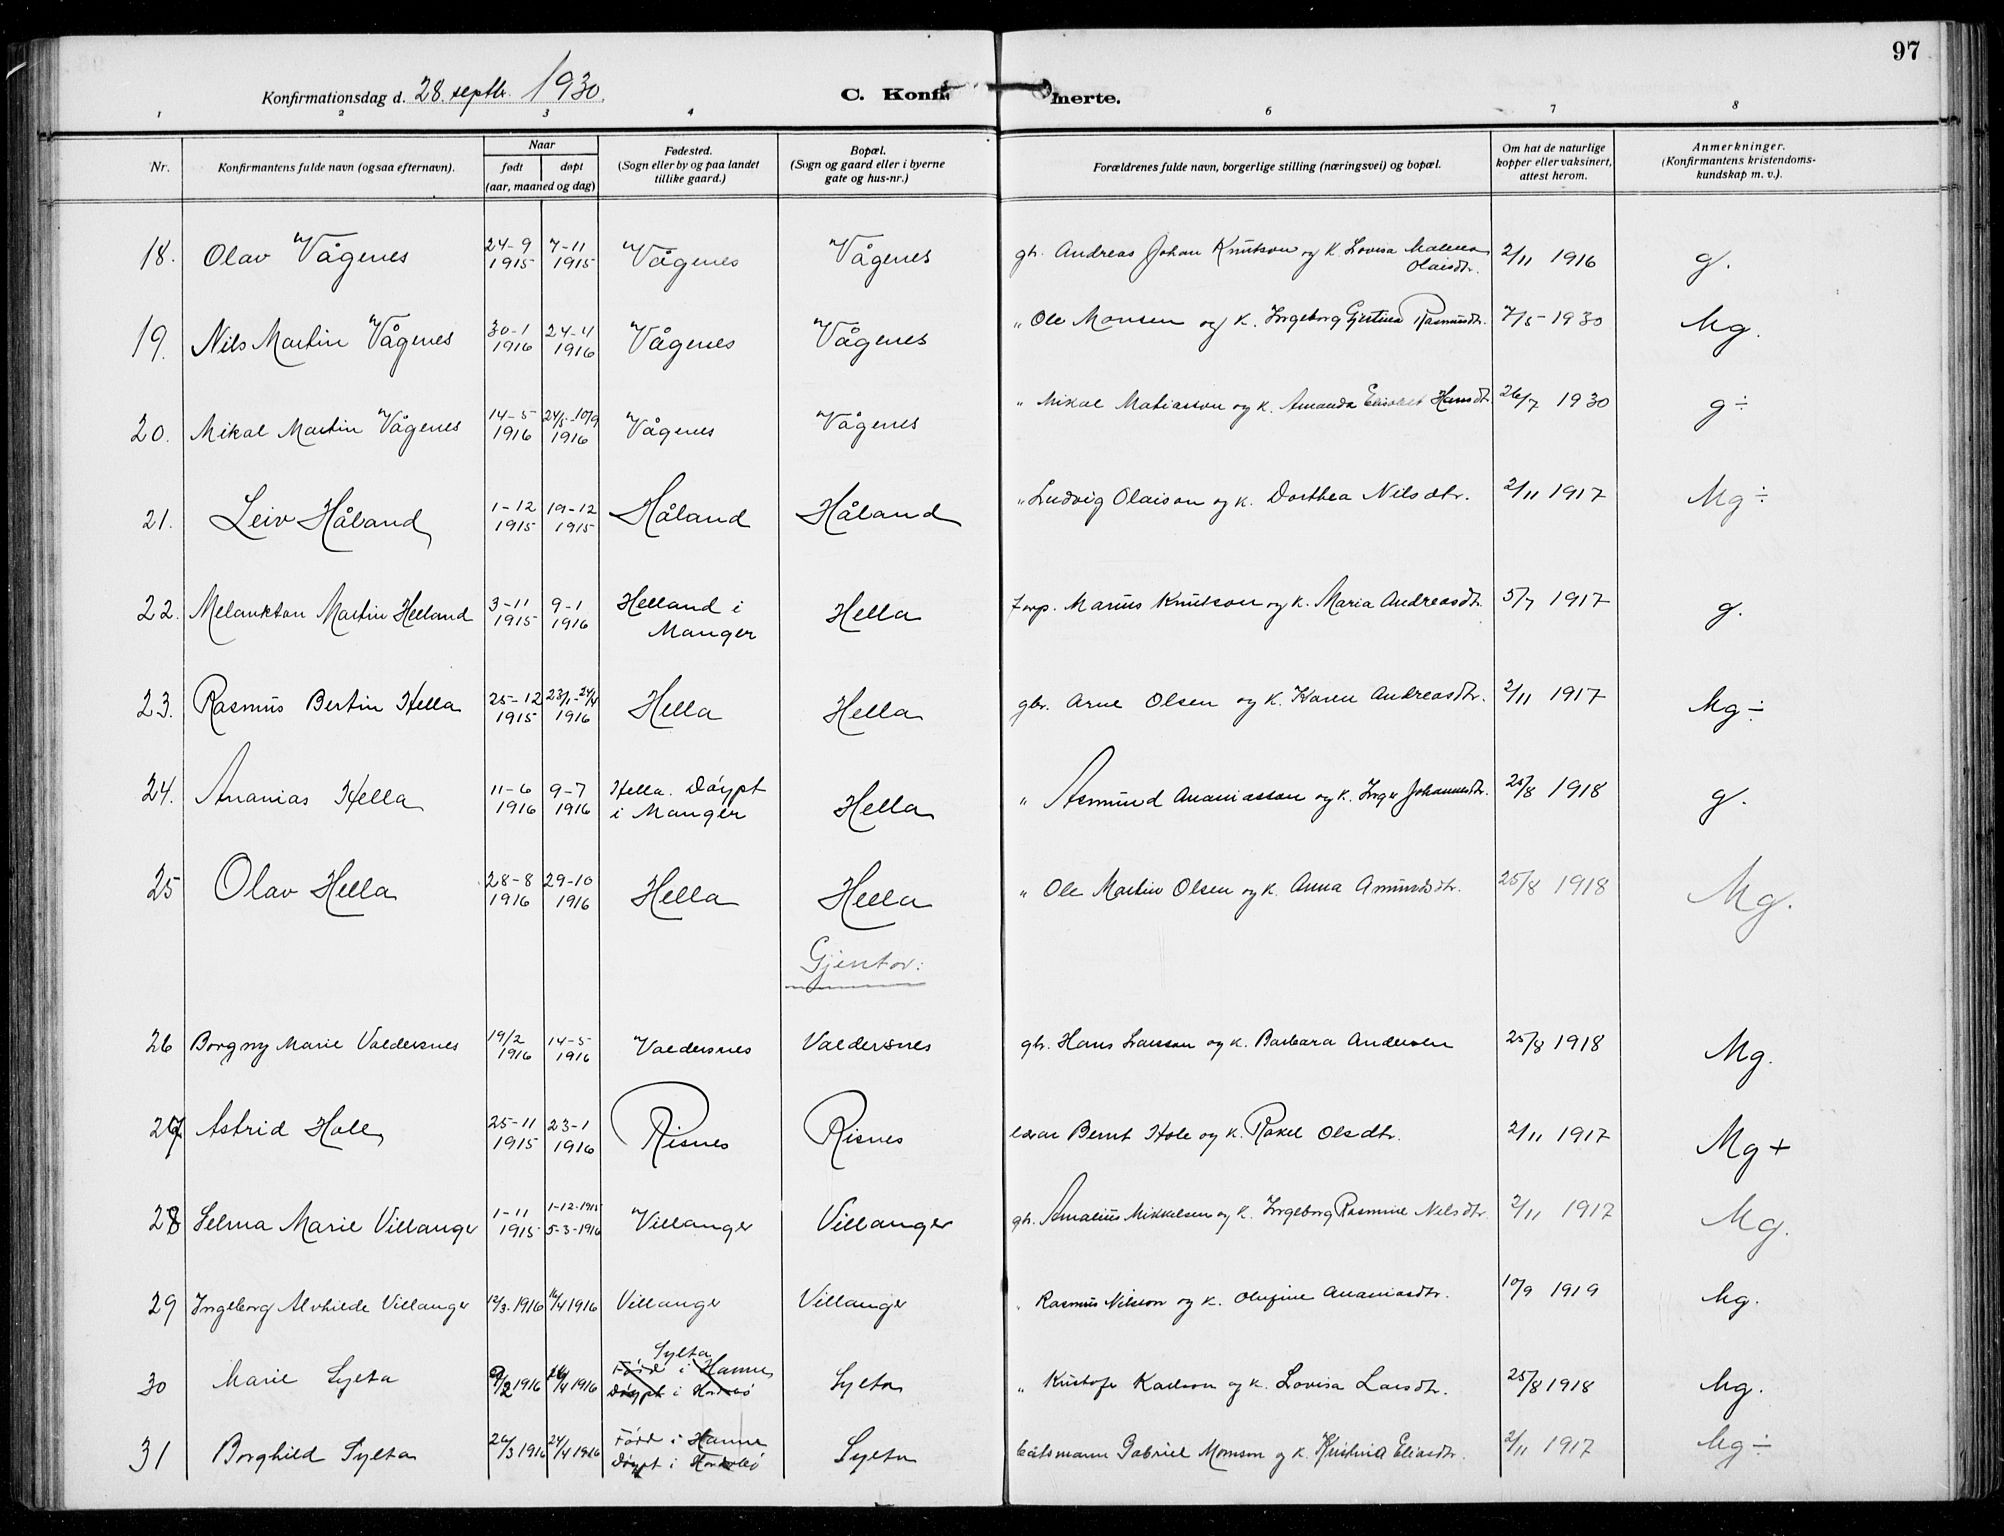 97
Konfirmationsdag d. 28. septbr. 1930.
C. Konfirmerte.
1 2 3 4 5 6 7 8
Nr. Konfirmantens fulde navn (ogsaa efternavn). Naar født døpt (aar, maaned og dag) Fødested. (Sogn eller by og paa landet tillike gaard.) Bopæl. (Sogn og gaard eller i byerne gate og hus-nr.) Forældrenes fulde navn, borgerlige stilling (næringsvei) og bopæl. Om hat de naturlige kopper eller vaksinert, attest herom. Anmerkninger. (Konfirmantens kristendoms-kundskap m. v.).
18. Olav Vågenes 24-9 1915 7-11 1915 Vågenes Vågenes gbr. Andreas Johan Knutson og k. Lovisa Malena Olaisdtr. 2/11 1916 g.
19. Nils Martin Vågenes 30-1 1916 24-4 1916 Vågenes Vågenes " Ole Monsen og k. Ingeborg Gjertina Rasmusdtr. 7/5 1930 Mg.
20. Mikal Martin Vågenes 14-5 1916 24/5-10/9 1916 Vågenes Vågenes " Mikal Matiasson og k. Amanda Elisabet Hansdtr. 26/7 1930 g÷
21. Leiv Håland 1-12 1915 19-12 1915 Håland Håland " Ludvig Olaison og k. Dorthea Nilsdtr. 2/11 1917 Mg÷
22. Melankton Martin Helland 3-11 1915 9-1 1916 Helland i Manger Hella forp. Marius Knutson og k. Maria Andreasdtr. 5/7 1917 g.
23. Rasmus Bertin Hella 25-12 1915 23/1-24/4 1916 Hella Hella gbr. Arne Olsen og k. Karen Andreasdtr. 2/11 1917 Mg÷
24. Ananias Hella 11-6 1916 9-7 1916 Hella. Døypt i Manger Hella " Asmund Ananiasson og k. Inger Johannesdtr. 25/8 1918 g.
25 Olav Hella 28-8 1916 29-10 1916 Hella Hella " Ole Martin Olsen og k. Anna Amundsdtr. 25/8 1918 Mg.
Gjentor:
26 Borgny Marie Valdersnes 19/2 1916 14-5 1916 Valdersnes Valdersnes gbr. Hans Larsson og k. Barbara Andersen 25/8 1918 Mg.
27 Astrid Hole 25-11 1915 23-1 1916 Risnes Risnes lærar Bernt Hole og k. Rakel Olsdtr. 2/11 1917 Mg+
28 Selma Marie Villanger 1-11 1915 1-12-1915 5-3-1916 Villanger Villanger gbr. Amalius Mikkelsen og k. Ingeborg Rasmine Nilsdtr. 2/11 1917 Mg.
29 Ingeborg Alvhilde Villanger 12/3 1916 16/4 1916 Villanger Villanger " Rasmus Nilsson og k. Olufine Ananiasdtr. 10/9 1919 Mg.
30 Marie Sylta /2 1916 /4 1916 Sylta Fødd i Hamre Døypt i Sylta " Kristofer Karlson og k. Lovisa Larsdtr. 25/8 1918 Mg.
31 Borghild Sylta 26/3 1916 24/4 1916 Fødd i Hamre Døypt i Sylta båtsmann Gabriel Monson og k. Kristina Eliasdtr. 2/11 1917 Mg÷